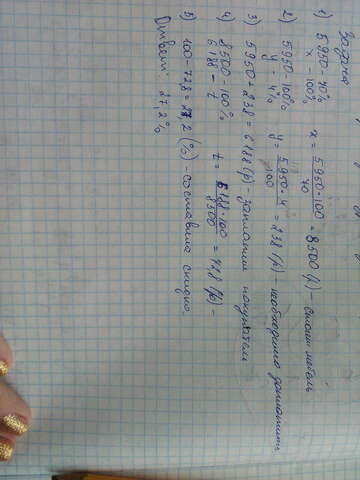 Задача
1) 5950 - 70%
x - 100%
x = 5950·100 / 70 = 8500 (р) - стоит мебель
2) 5950 - 100%
y - 4%
y = 5950·4 / 100 = 238 (р) - необходимо доплатить
3) 5950 + 238 = 6188 (р) - заплатит покупатель
4) 8500 - 100%
6188 - z
z = 6188·100 / 8500 = 72,8 (р) -
5) 100 - 72,8 = 27,2 (%) - составила скидка.
Ответ: 27,2%